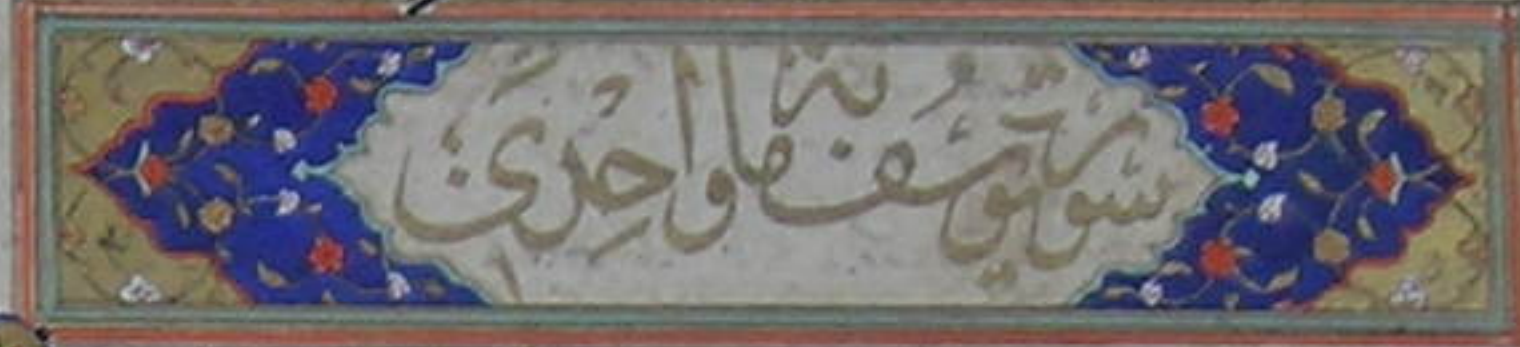 سورة يوسف ماية واحدى